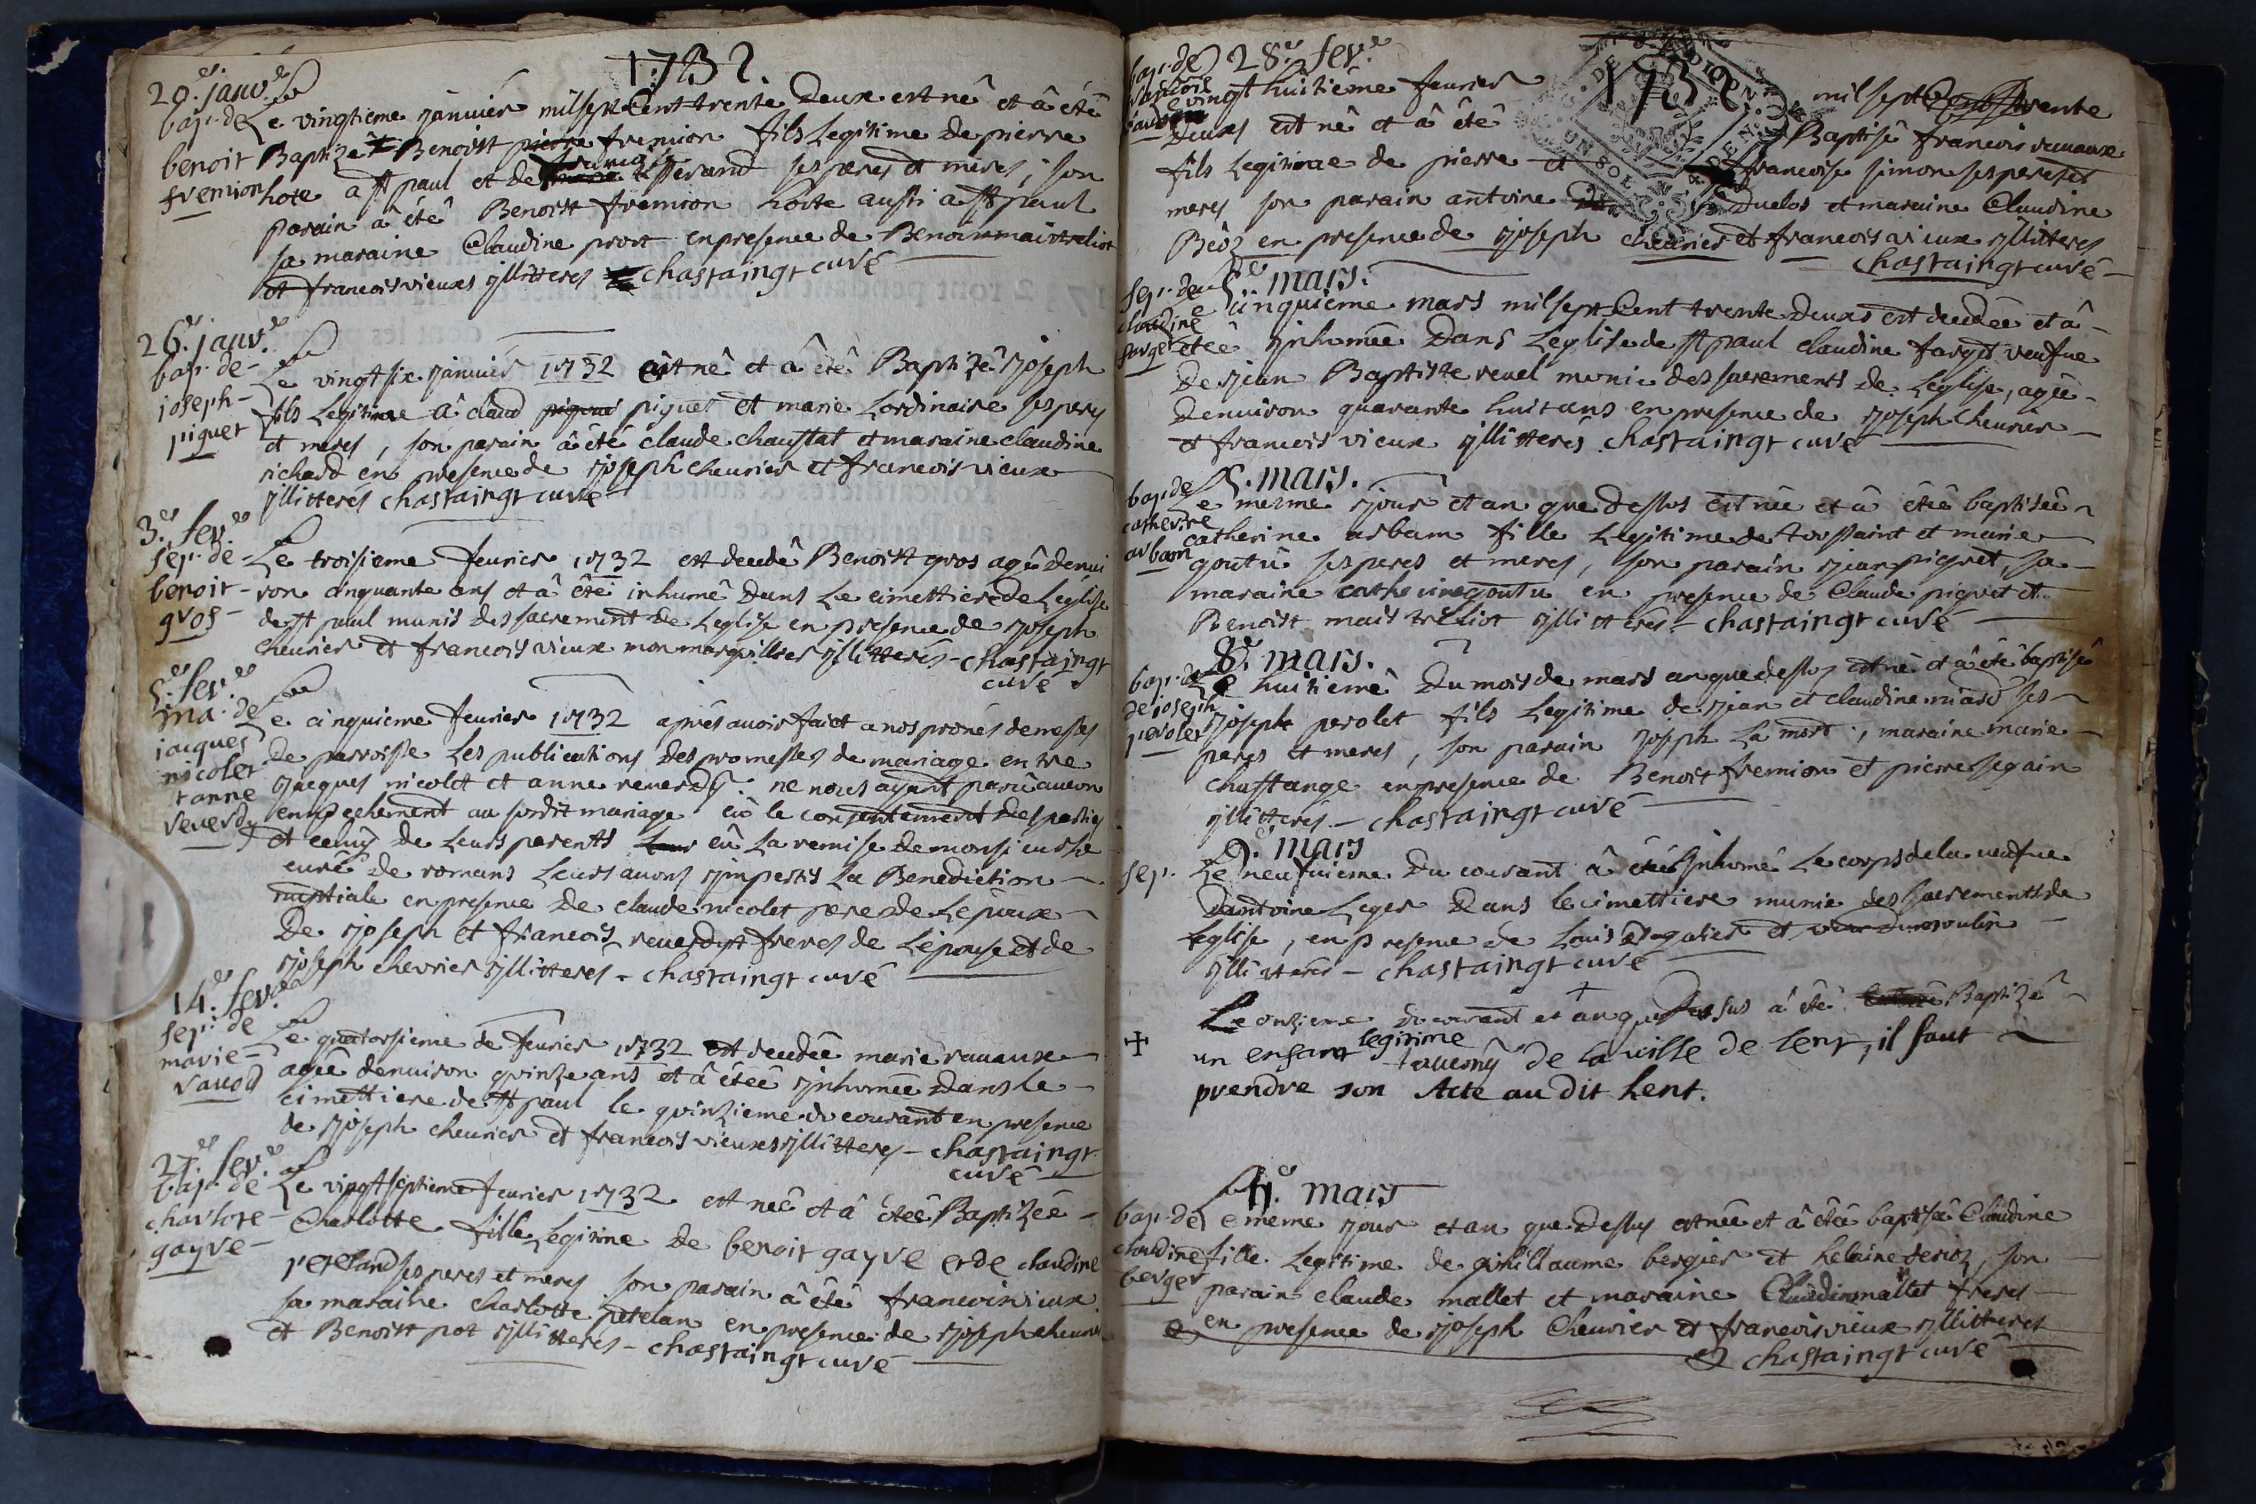 1732.
20.e janv.er
bap. de Le vingtieme janvier mil sept Cent trente Deux est né et â êtê
benoit Baptizé Benoist pierre fremion fils Legitime De pierre
fremion hote a st paul et de ses peres et meres, son
parain â êtê Benoist fremion hoste aussi a st paul
sa maraine Claudine prost en presence de Benoit maistraliot
et francois vieux yllitteres chastaingt curé
26.e janv.er
bap. de Le vingt six janvier 1732 est nê et â êtê Baptizê joseph
joseph fils Legitime â claud piquet et marie Lordinaire ses peres
piquet et meres, son parain â êtê claude chaustat et maraine claudine
richard en presence de joseph cheurier et francois vieux
yllitteres chastaingt curé
3.e fev.er
sep. de Le troisieme feurier 1732 est decedê Benoist gros agê denui
benoit ron cinquante ans et â êtê inhumê Dans Le cimettiere de Leglise
gros de st paul munis des sacrement de Leglise en presence de joseph
cheurier et francois vieux mon marguillier yllitteres - chastaingt
curé
5.e fev.er
ma. de Le cinquieme feurier 1732 aprés auoir faict a nos prones de messes
jacques de parroisse Les publications Des promesses de mariage entre
nicolet jacques nicolet et anne reuerdy ne nous ayant parû aucun
et anne empechement au susdit mariage eü le consentement des parties
reuerdy et celuy de Leurs parents eü La remise de monsieur Le
curé de romans Leurs auons ympartis La Benediction
nuptiale en presence De claude nicolet pere de Lepoux
De joseph et francois reuerdy freres de Lepouse et de
joseph chevrier yllitteres - chastaingt curé
14.e fev.er
sep. de Le quatorsieme de feurier 1732 est decedée marie rauaux
marie agêe denuiron quinze ans et â étée ynhumée Dans le
ravaud cimettiere de st paul le quinzieme du courant en presence
de joseph cheurier et francois vieux yllitteres - chastaingt
curé
27.e fev.er
bap. de Le vingt septieme feurier 1732 est neê et â êteê Baptizée
charlote Charlotte fille Legitime De benoit gayve et de claudine
gayve peteland ses peres et meres son parain â êtê francois vieux
sa maraine charlotte petelan en presence de joseph cheurier
et Benoist pot yllitteres - chastaingt curé
1732
bap. de 28.e fev.er
Le vingt huitiême feurier mil sept Cent trente
Deux est nê et â êtê Baptisê francois rauaux
fils Legitime de pierre et francoise simon ses peres et
meres son parain antoine Duclos et maraine Claudine
Beôz en presence de joseph cheurier et francois vieux yllitteres
chastaingt curé
5.e mars.
sep. de Le cinquieme mars mil sept Cent trente Deux est decedée et â
claudine êtêe ynhumée Dans Leglise de st paul claudine farget veufue
farget De jean Baptiste reuel munie des sacrements de Leglise, agée
Denuiron quarante huit ans en presence de joseph cheurier
et francois vieux yllitteres chastaingt curé
5. mars.
bap. de Le mesme jour et an que Dessus est née et â êtêe baptisée
catherine catherine arbam fille Legitime de toussaint et marie
arbam goutu ses peres et meres, son parain jean piquet, sa
maraine catherine goutu en presence de Claude piquet et
Benoist maistreliot yllitteres - chastaingt curé
8.e mars.
bap. de Le huitieme Du mois de mars an que dessus est né et â êtê baptisê
de joseph joseph perolet fils Legitime de jean et claudine miard ses
perolet peres et meres, son parain joseph La mort, maraine marie
chastange en presence de Benoist fremion et pierre segain
yllitteres - chastaingt curé
9.e mars
sep. Le neufuieme Du courant â êtê ynhumê Le corps de la ueufue
Dantoine Leger Dans le cimettiere munie des sacrements de
Leglise, en presence de Louis et moulin
yllitteres - chastaingt curé
Le onzieme du courant et an que Dessus â êtê Baptizê
un enfant legitime de La uille de Lent, il faut
prendre son Acte au dit Lent.
11.e mars
bap. de Le meme jour et an que Dessus est née et â êtêe baptisêe Claudine
claudine fille Legitime de guillaume bergier et helaine, son
berger parain claude mallet et maraine Claudine mallet freres
en presence de joseph Cheurier et francois vieux yllitteres
chastaingt curé